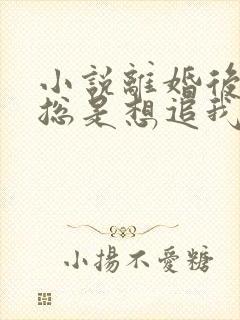 小說離婚後
總是想追我
小揚不愛糖